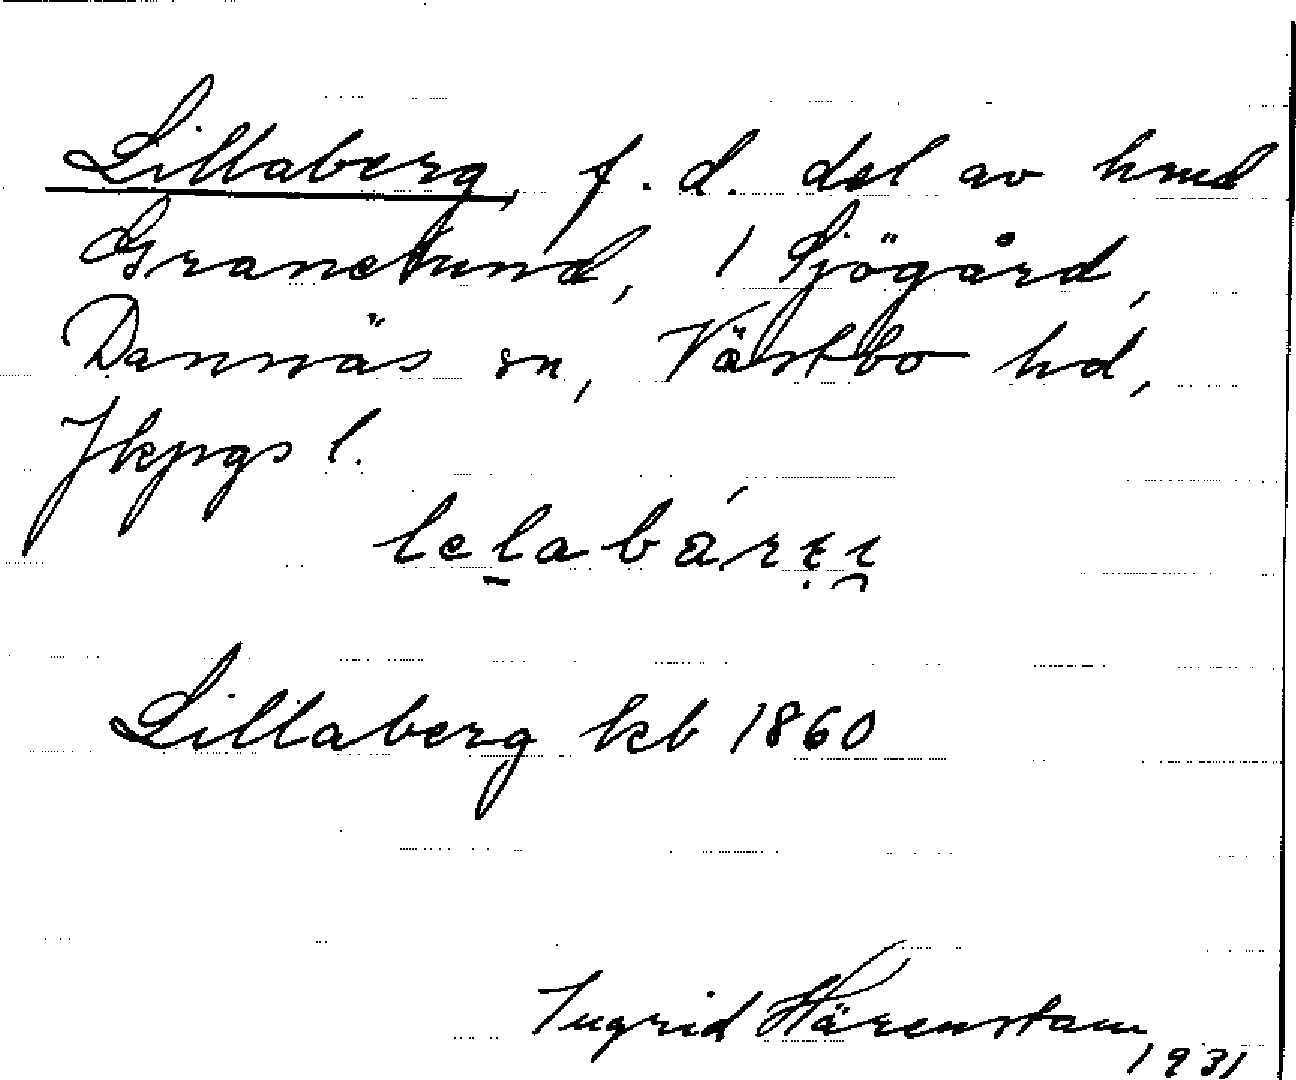 Lillaberg, f. d. del av hmd
Granelund, 1 Sjögård,
Dannäs sn, Västbo hd,
Jkpgs l.
Lillaberg kb 1860
Ingrid Härenstam
1931